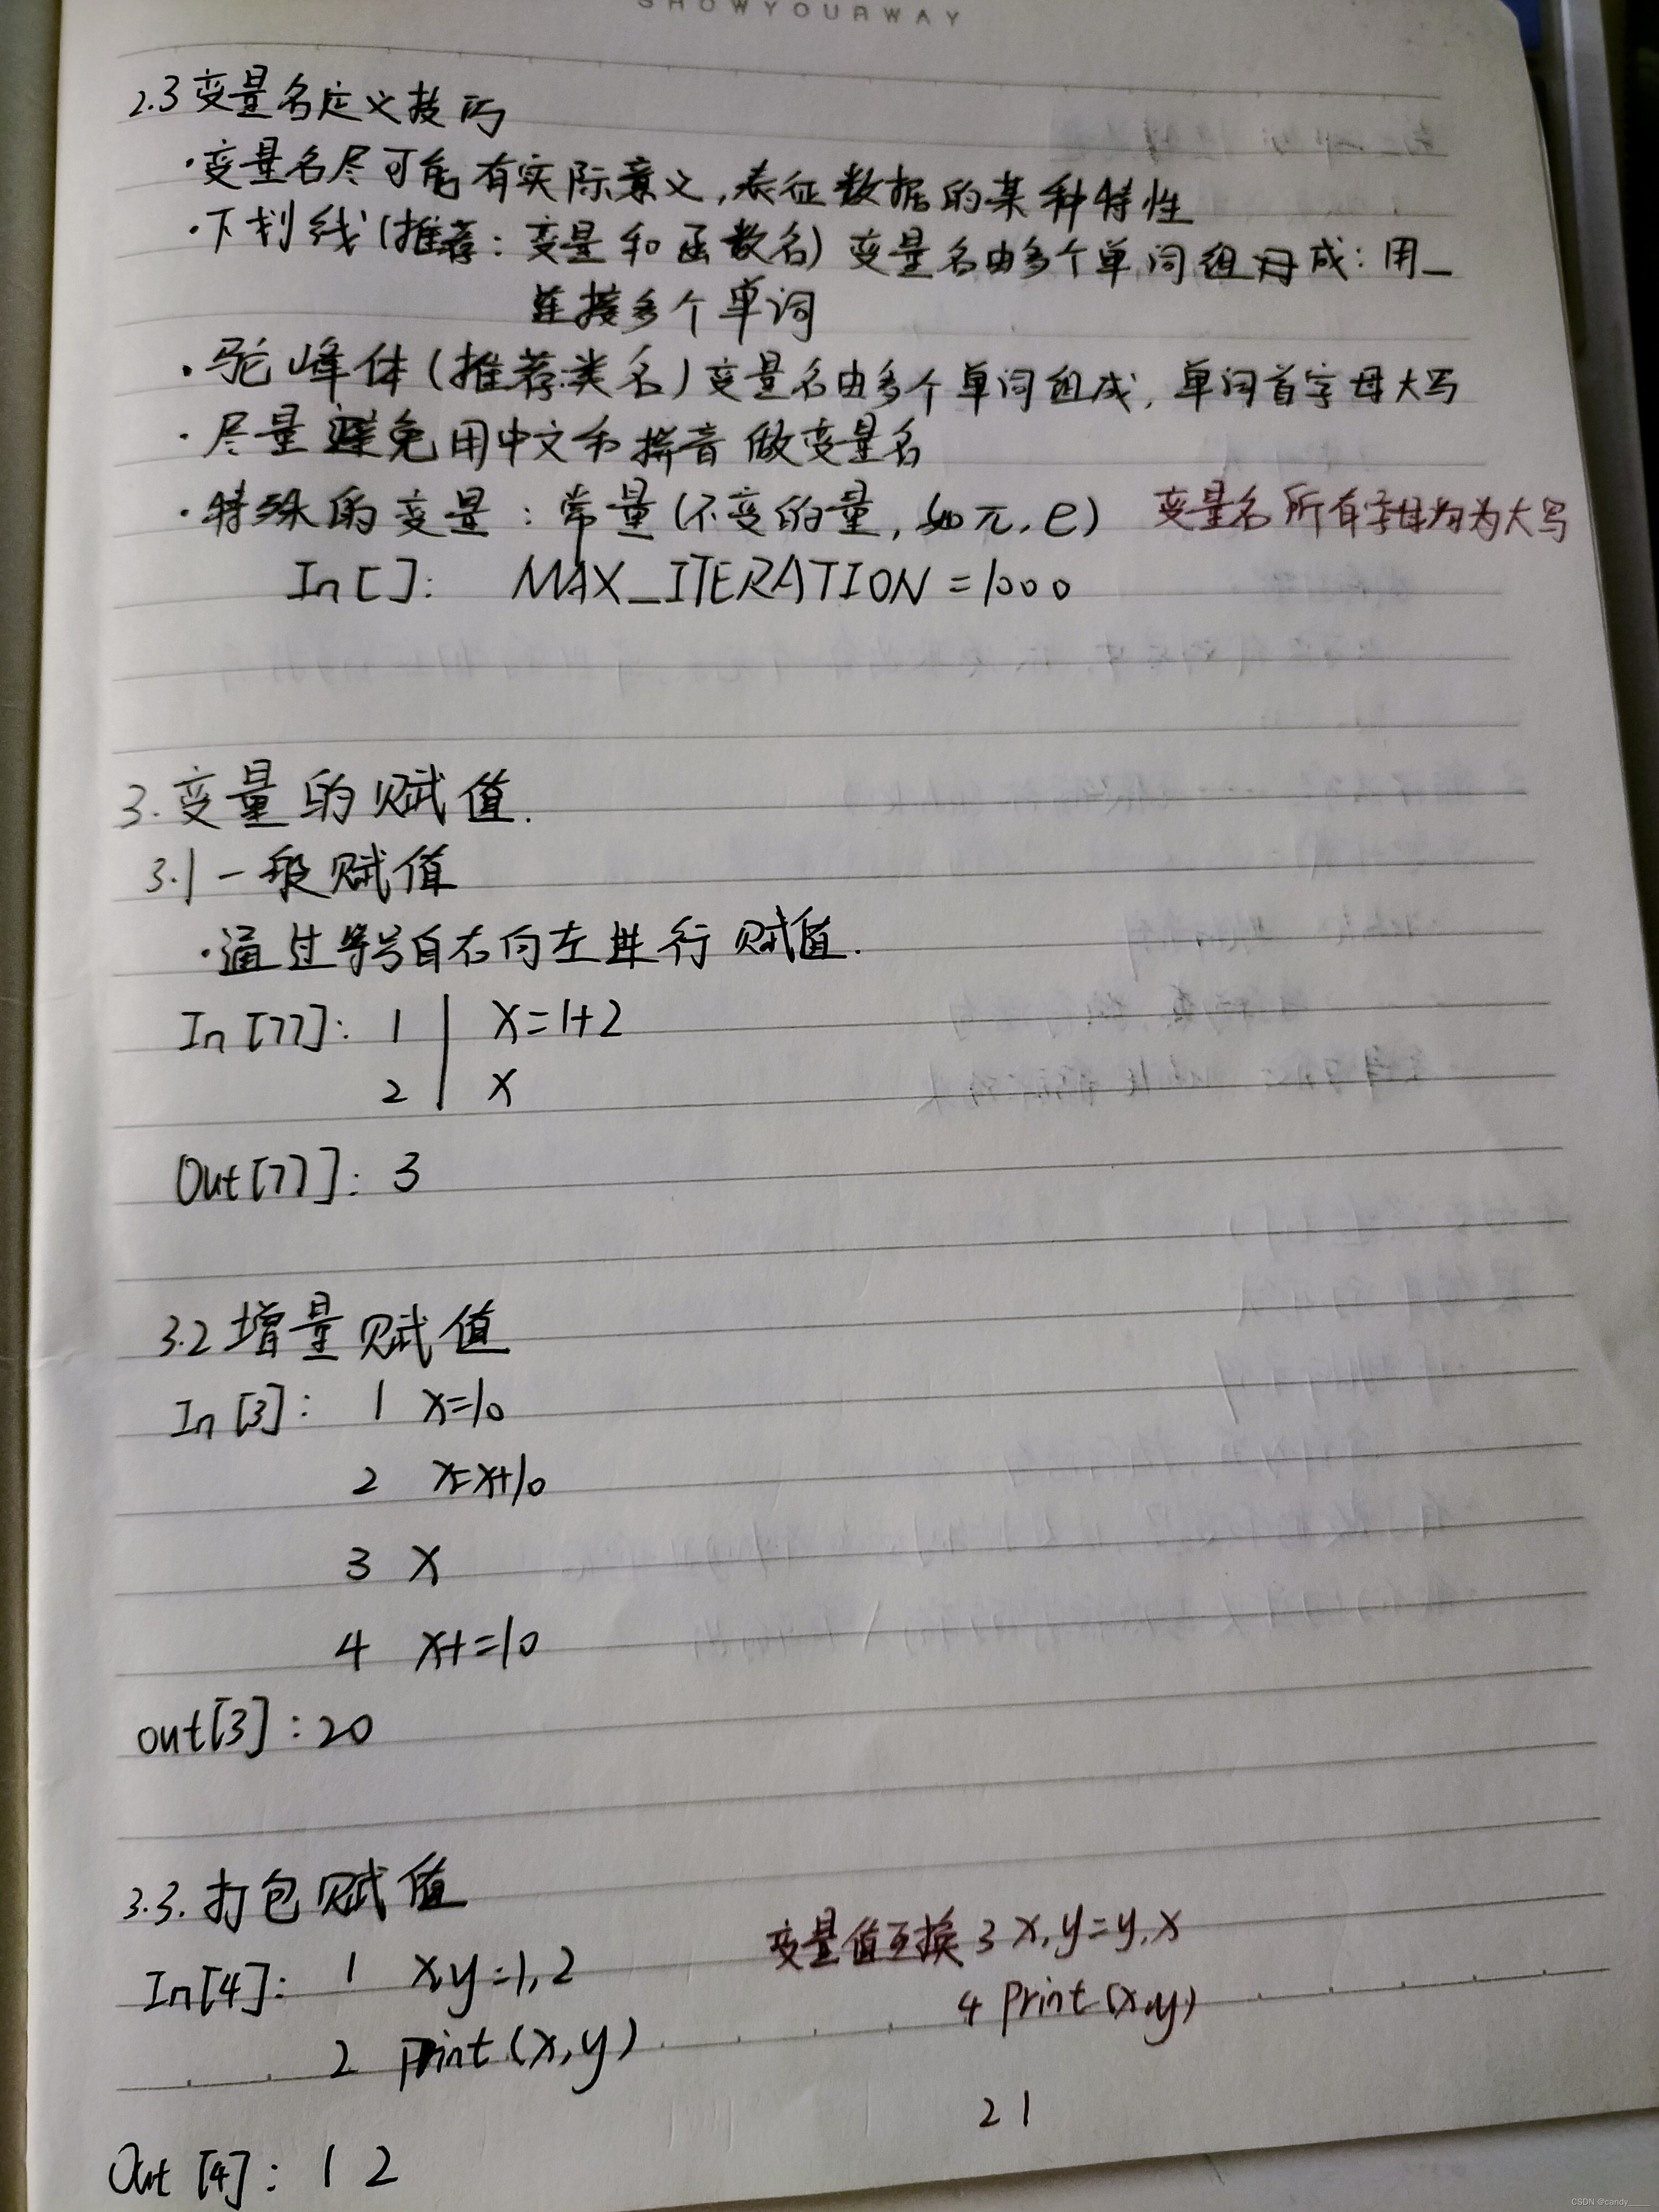 SHOWYOURWAY
2.3 变量名定义技巧
·变量名尽可能有实际意义,表征数据的某种特性
·下划线(推荐:变量和函数名) 变量名由多个单词组母成:用_
连接多个单词
·驼峰体(推荐:类名)变量名由多个单词组成,单词首字母大写
·尽量避免用中文和拼音做变量名
·特殊的变量:常量(不变的量,如π,e) 变量名所有字母均为大写
In[]: MAX_ITERATION=1000
3.变量的赋值.
3.1一般赋值
·通过等号自右向左进行赋值.
In[77]: 1 | x=1+2
2 | x
Out[77]: 3
3.2增量赋值
In[3]: 1 x=10
2 x=x+10
3 x
4 x+=10
out[3]:20
3.3.打包赋值
In[4]: 1 x,y=1,2
2 print(x,y)
变量值互换 3 x,y=y,x
4 print(x,y)
2 1
Out[4]: 1 2
CSDN @candy____